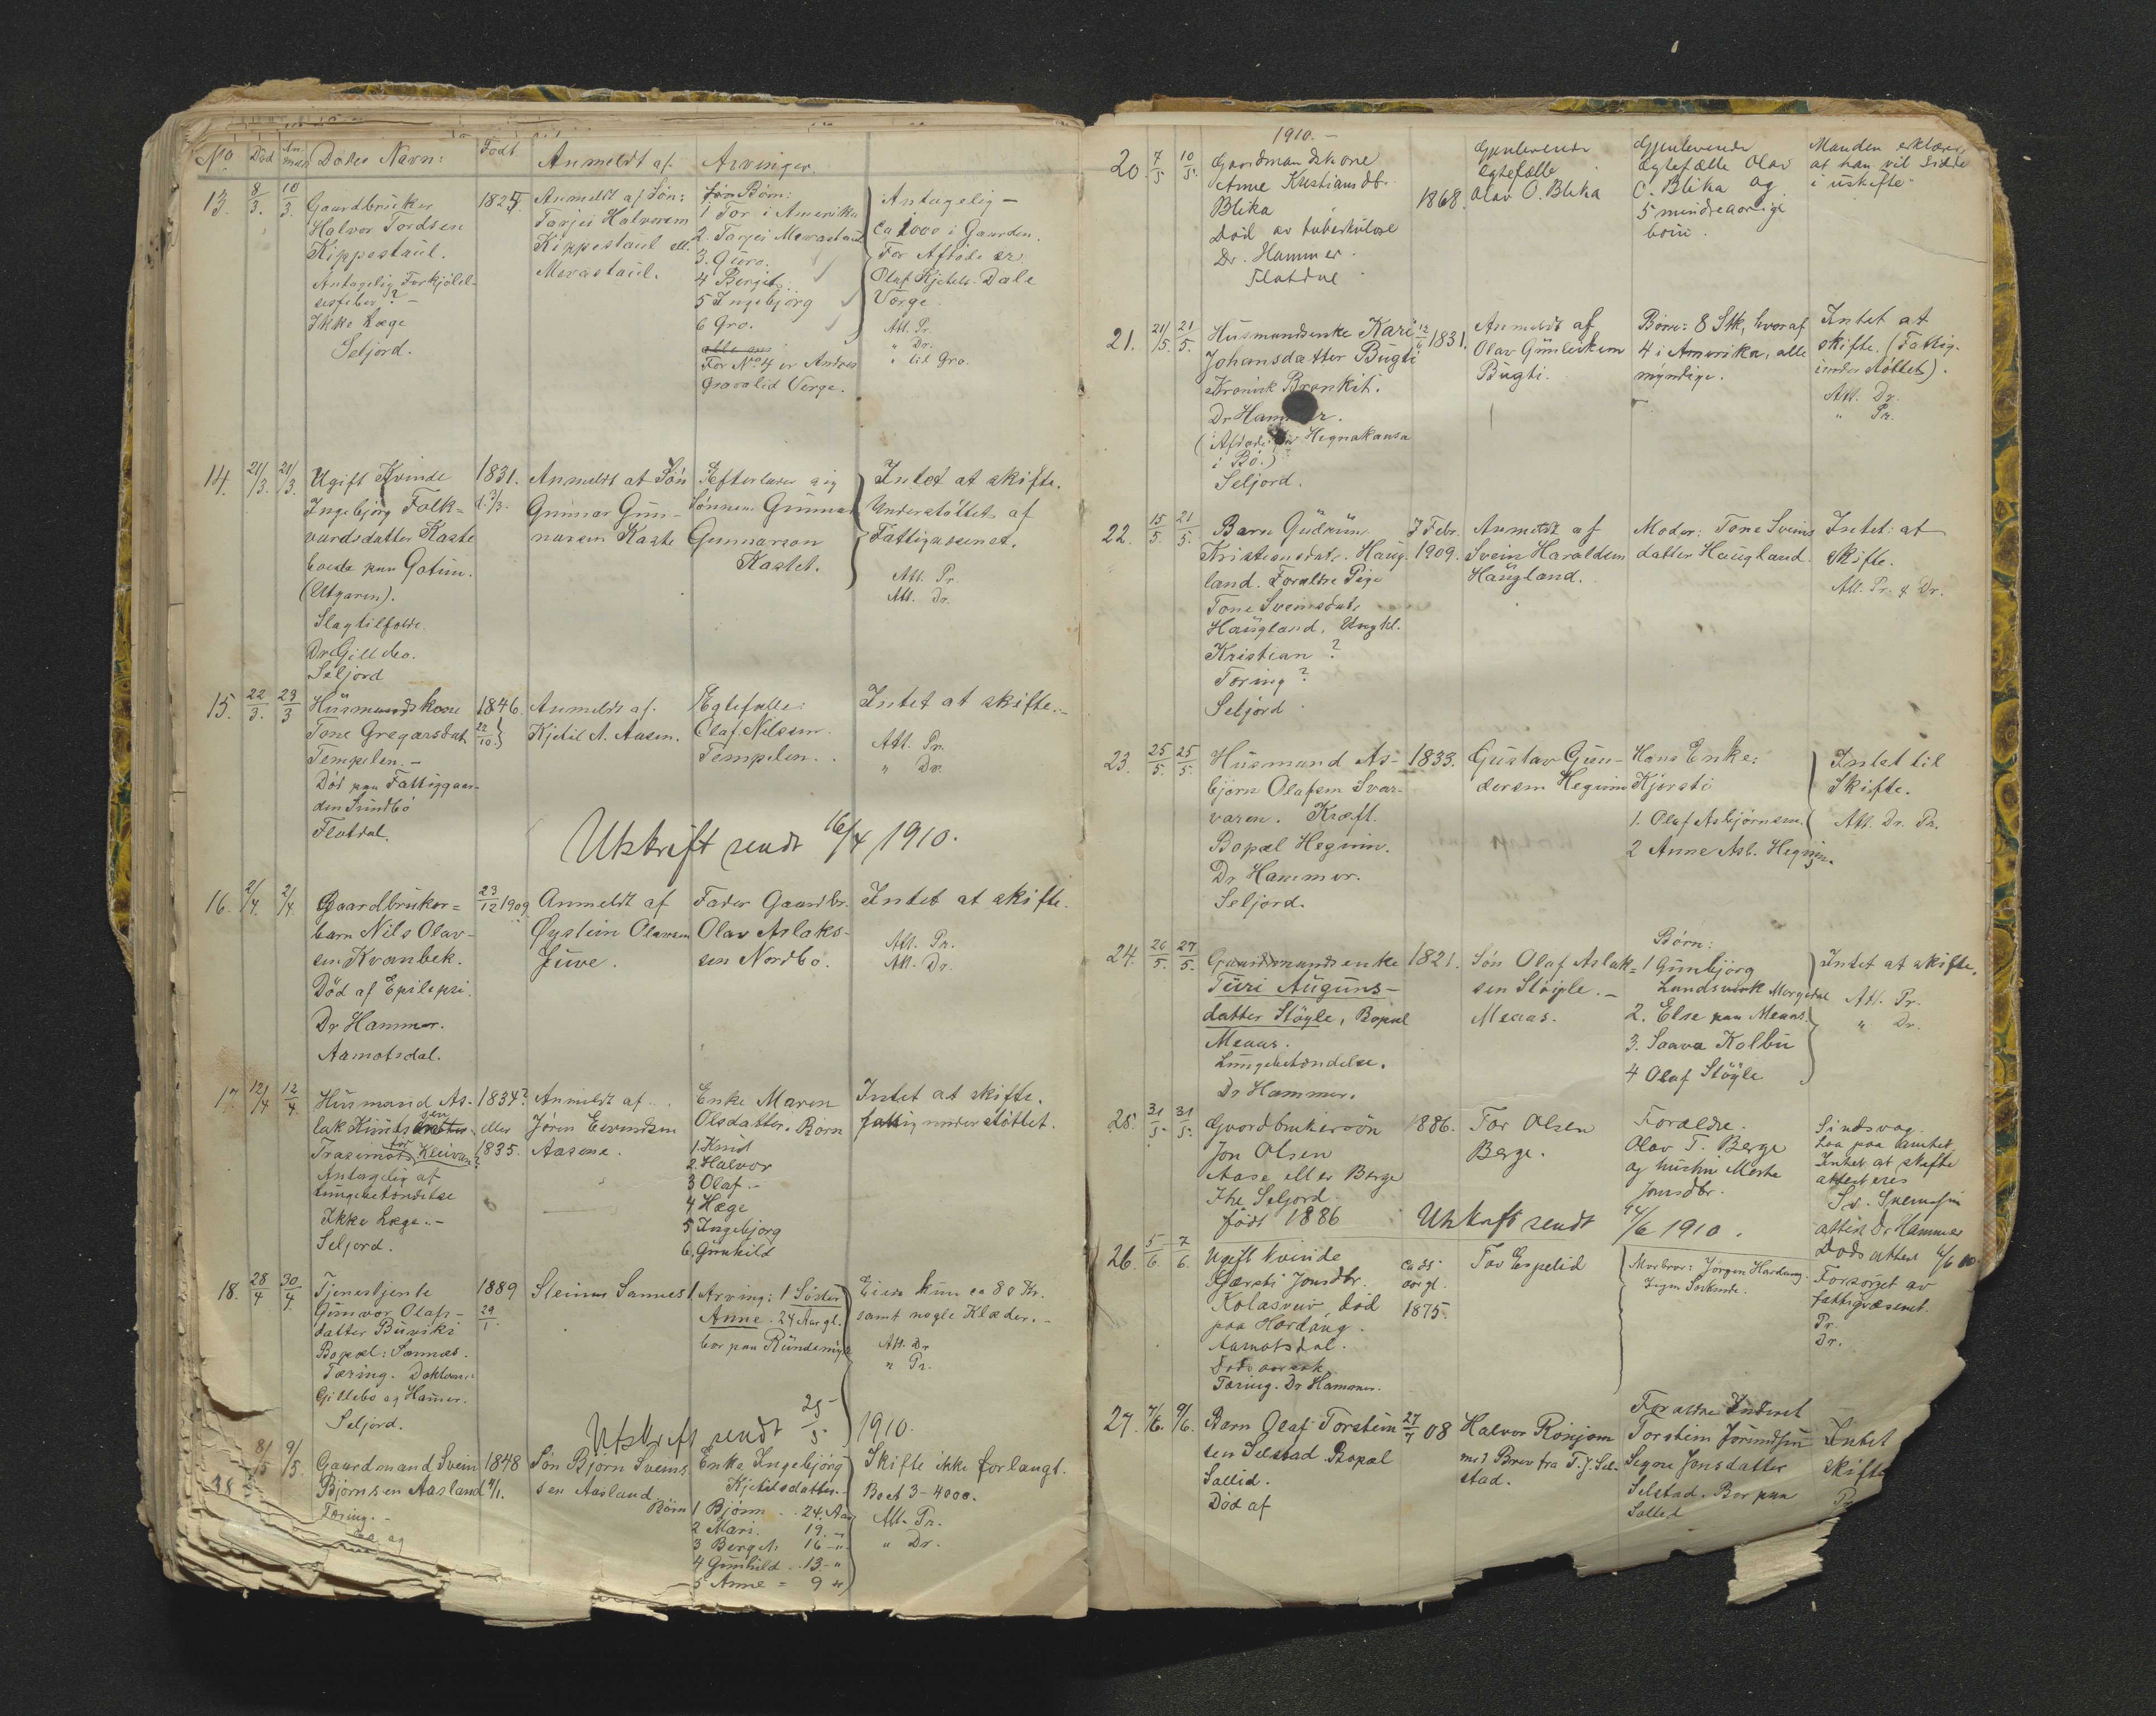 No. Död Anm. Dödes Navn: Födt Anmeldt af Arvinger
13. 8/3. 10/3. Gaardbruker
Halvor Tordsen
Kippestaul.
Antagelig Forkjölel-
sesfeber? -
Ikke Læge
Seljord.
Anmeldt af Sön:
Tarjei Halvorsen
Kippestaul ell.
Börn:
1 Tor i Amerika
2. Tarjei
3. Guro.
4 Bergit.
5 Ingebjörg
6 Gro.
For No. 4 er Andres
Gravalid Verge.
Antagelig -
ca 1000 i Gaarden.
For Afdöde er
Olaf Kjetels. Dale
Værge
Att. Pr.
" Dr.
" til Gro.
14. 21/3. 21/3. Ugift Kvinde
Ingebjörg Folk=
vardsdatter Kaste
boede paa Gotun.
(Utgaren).
Slagtilfælde.
Dr Gillebo.
Seljord
1831.
Anmeldt af Sön
Gunnar Gun-
narsen Kaste
Efterlader sig
Sönnen Gunnar
Gunnarson
Kastet.
Intet at skifte.
Understöttet af
Fattigvæsenet.
Att. Pr.
Att. Dr.
15. 22/3. 23/3 Husmandskone
Tone Gregarsdat.
Tempelen. -
Död paa Fattiggaar-
den Sundbö
Flatdal.
1846.
22/10.
Anmeldt af.
Kjetil A. Aasen.
Ægtefælle:
Olaf Nilsen
Tempelen.
Intet at skifte. -
Att. Pr.
" Dr.
Utskrift sendt 16/4 1910.
16. 2/4. 2/4. Gaardbruker=
barn Nils Olav-
sen Kvanbek.
Död af Epilepsi.
Dr Hammer.
Aamotsdal.
23/12 1909
Anmeldt af
Øystein Olavsen
Juve.
Fader Gaardbr.
Olav Aslaks-
sen Nordbö.
Intet at skifte.
Att. Pr.
Att. Dr.
17. 12/4 12/4. Husmand As-
lak Knutsen
Trasimots Kleivan
Antagelig af
Lungebetændelse
Ikke Læge. -
Seljord.
1834?
eller
1835.
Anmeldt af
Jören Eivindsen
Aasene.
Enke Maren
Olsdatter. Börn
1. Knut
2. Halvor
3 Olaf. -
4 Hæge
5 Ingebjörg
6. Gunhild
Intet at skifte.
fattigunderstöttet.
18. 28/4 30/4. Tjenestjente
Gunvor Olafs-
datter
Bopæl: Sannes.
Tæring. Doktor
Gillebo og Hamer.
Seljord.
1889
29/1.
Steinar Sannes
1 Arving: 1 Söster
Anne. 24 Aar gl.
bor paa
Eier kun ca 80 Kr.
samt nogle Klæder. -
Att. Dr
" Pr.
Utskrift sendt 25/5 1910.
8/5 9/5. Gaardmand Svein
Björnsen Aasland
Tæring. -
1848
Sön Björn Sveins
sen Aasland
Enke Ingebjörg
Kjetilsdatter. -
Börn 1 Björn . . 24. Aar
2 Mari. 19. -"
3 Berget. 16 -"
4 Gunhild . . 13 -"
5 Anne = 9 "
Skifte ikke forlangt.
Boet 3-4000.
Att. Pr.
" Dr.
1910. -
20. 7/5 10/5. Gaardmandskone
Anne Kristiansdtr.
Blika
Död av tuberkulose
Dr. Hammer.
Flatdal
1868.
Gjenlevende
Ægtefælle
Olav O. Blika
Gjenlevende
Ægtefælle Olav
O. Blika og
5 mindreaarige
börn.
Manden erklærer
at han vil sidde
i uskifte.
21. 21/5. 21/5. Husmandsenke Kari
Johansdatter Bugti
Kronisk Bronkit.
Dr Hammer.
i Bö.)
Seljord.
1831.
Anmeldt af
Olav Gunleiksen
Bugti.
Börn: 8 Stk, hvoraf
4 i Amerika, alle
myndige.
Intet at
skifte. (Fattig-
understöttet).
Att. Dr.
" Pr.
22. 15/5. 21/5. Barn Gudrun
Kristiansdat. Haug-
land. Forældre Pige
Tone Sveinsdat.
Haugland, Ungkl.
Kristian ?
Tæring ?
Seljord
7 Febr.
1909.
Anmeldt af
Svein Haraldsen
Haugland.
Moder: Tone Sveins
datter Haugland.
Intet at
skifte.
Att. Pr. & Dr.
23. 25/5. 25/5. Husmand As-
björn Olafsen Svar-
varen. Kræft.
Bopæl Heginn.
Dr Hammer.
Seljord.
1833.
Gustav Gun-
dersen Heginn
Hans Enke:
Kjersti
1. Olaf Asbjörnsen.
2 Anne Asb. Heginn.
Intet til
Skifte.
Att. Dr. Pr.
24. 26/5. 27/5. Gaardmandsenke
Turi Auguns-
datter Stöyle, Bopæl
Meaas.
Lungebetændelse.
Dr Hammer.
1821.
Sön Olaf Aslak=
sen Stöyle. -
Meaas.
Börn:
1 Gunbjörg
Lundsvik Morgedal
2. Else paa Meaas.
3. Saava Kolbu
4 Olaf Stöyle
Intet at skifte.
Att. Pr.
" Dr.
25. 31/5. 31/5. Gaardbrukersön
Jon Olsen
Aase eller Berge
Seljord.
födt 1886
1886.
Tor Olsen
Berge.
Forældre.
Olav T. Berge
og hustru
Jonsdtr.
Sindsvag.
laa paa Amtet,
Intet at skifte
attest Dr Hammer
Dödsattest
Utskrift sendt 4/6 1910.
26. 5/6. 7/6. Ugift kvinde
Kjersti Jonsdtr.
Kolasveiv, död
paa Hardang.
Aamotsdal.
Tæring. Dr Hammer.
1875.
Tov Espelid
Morbror: Jörgen Hardang.
Forsörget av
fattigvæsenet.
Pr.
Dr.
27. 7/6. 9/6. Barn Olaf Torstein
sen Selstad Bopæl
Sallid.
Död af
27/7 08
Halvor Rönjom
med Brev fra T. J. Sel-
stad.
Forældre
Torstein
Signe Jonsdatter
Selstad. Bor paa
Sallid
Intet
skifte